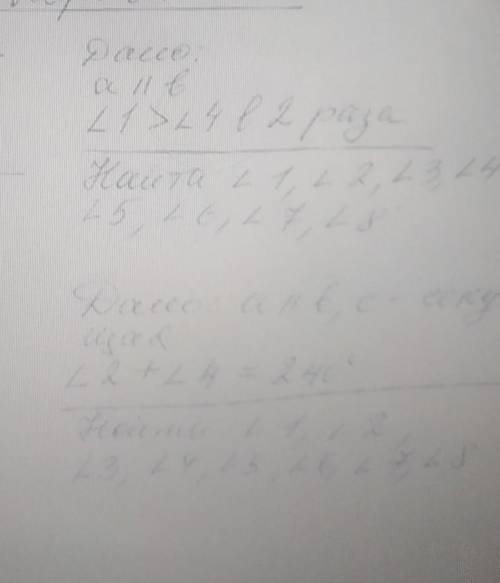 Дано:
a || b
∠1 > ∠4 в 2 раза
Найти ∠1, ∠2, ∠3, ∠4
∠5, ∠6, ∠7, ∠8
Дано: a || b, c - секу
щая
∠2 + ∠4 =
Найти ∠1, ∠2,
∠3, ∠4, ∠5, ∠6, ∠7, ∠8